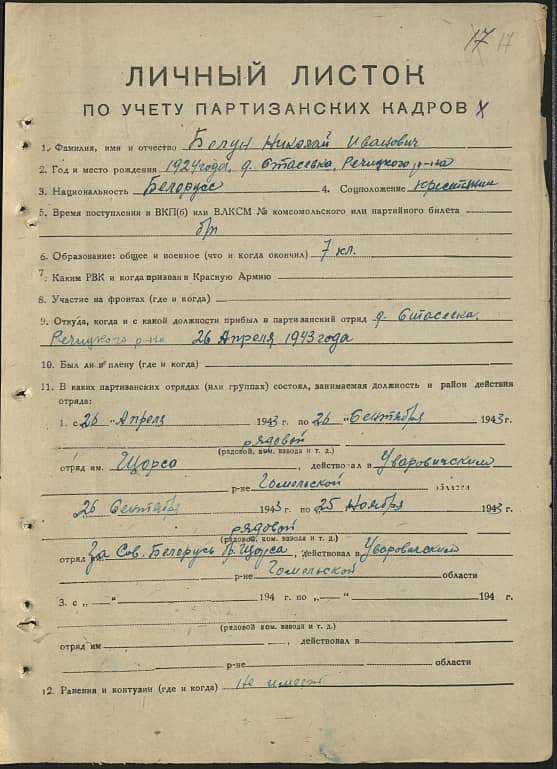 17 17
ЛИЧНЫЙ ЛИСТОК
ПО УЧЕТУ ПАРТИЗАНСКИХ КАДРОВ
1. Фамилия, имя и отчество Белун Николай Иванович
2. Год и место рождения 1924 года, д. Стасевка, Речицкого р-на
3. Национальность Белорусс 4. Соцположение Крестьянин
5. Время поступления в ВКП(б) или ВЛКСМ № комсомольского или партийного билета
б/п
6. Образование: общее и военное (что и когда окончил) 7 кл.
7. Каким РВК и когда призван в Красную Армию
8. Участие на фронтах (где и когда)
9. Откуда, когда и с какой должности прибыл в партизанский отряд д. Стасевка,
Речицкого р-на 26 Апреля 1943 года
10. Был ли в плену (где и когда)
11. В каких партизанских отрядах (или группах) состоял, занимаемая должность и район действия
отряда:
1. с 26 " Апреля 1943 г. по 26 " Сентября 1943 г.
рядовой
(рядовой, ком. взвода и т. д.)
отряд им. Щорса , действовал в Уваровичском
р-не Гомельской области
26 Сентября 1943 г. по 25 Ноября 1943 г.
рядовой
(рядовой, ком. взвода и т. д.)
отряд За Сов. Белорусь бр. Щорса , действовал в Уваровичский
р-не Гомельской области
3. с „ — " 194 г. по „ — " 194 г.
(рядовой ком. взвода и т. д.)
отряд им , действовал в
р-не области
12. Ранения и контузии (где и когда) Не имеет